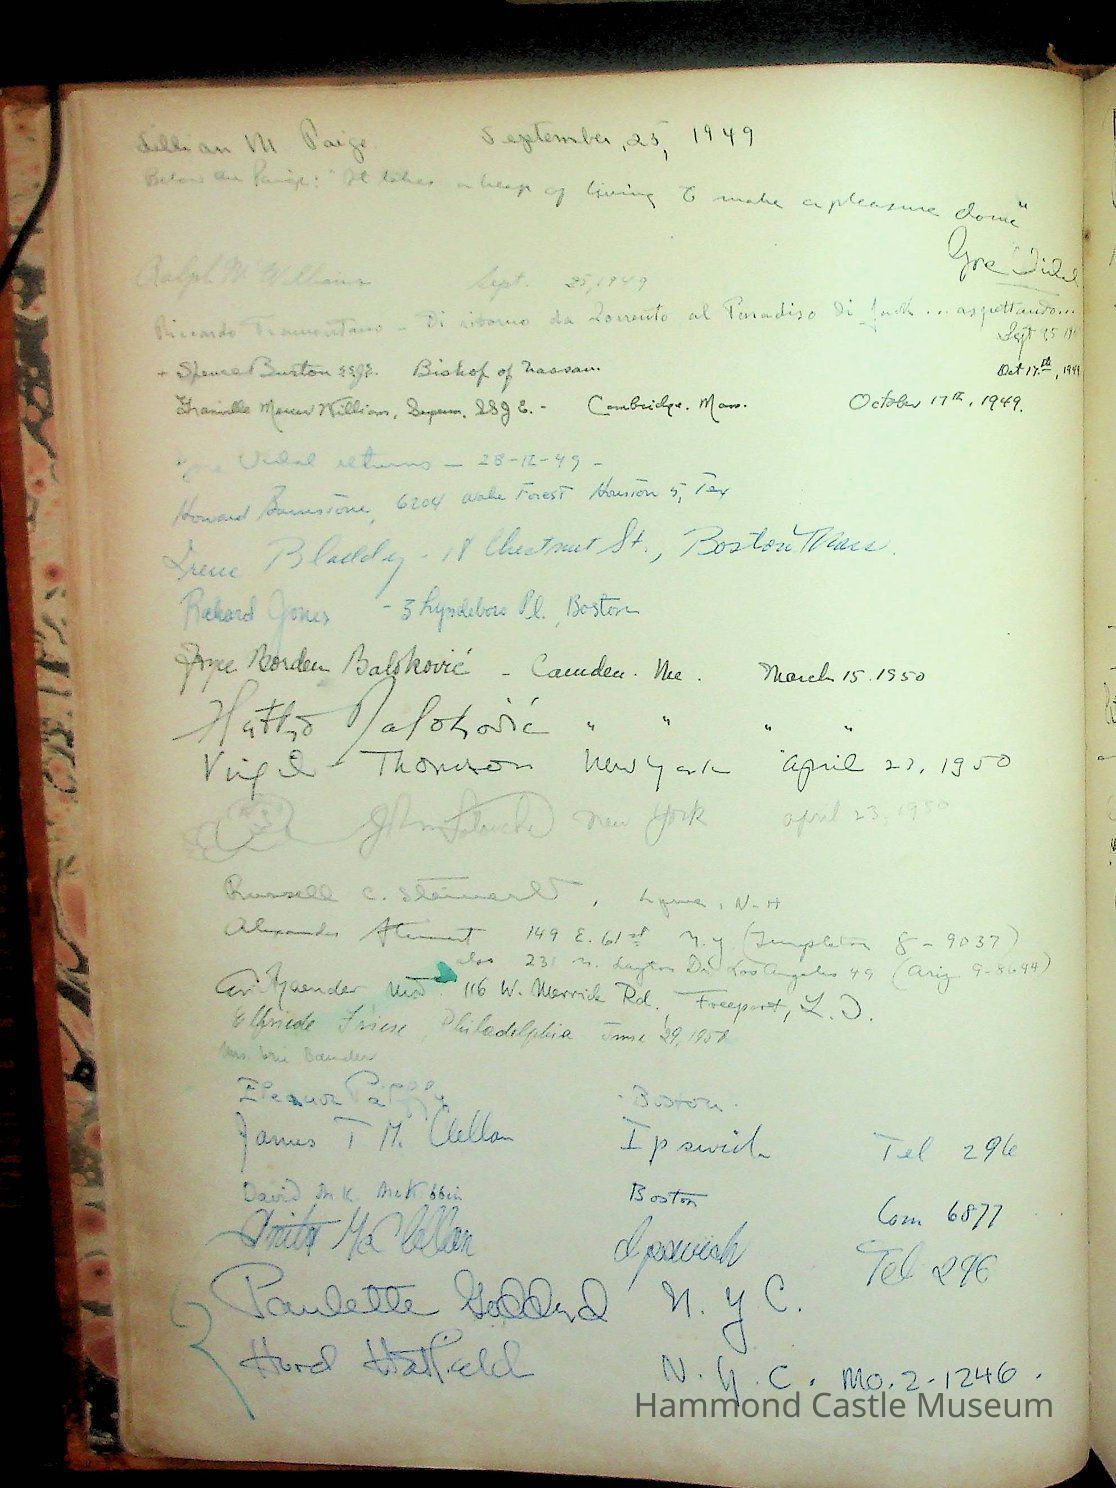 Lillian M Paige September, 25, 1949
Below the Paige: "It takes a heap of living to make a pleasure dome"
Gore Vidal
Ralph McWilliams Sept. 25, 1949
Riccardo Tramontano - Di ritorno da Sorrento al Paradiso di Jack ... aspettando...
Sept 25
+ Spence Burton SSJE. Bishop of Nassau. Oct 17th, 1949
Granville Mercer Williams, Superior, SSJE. - Cambridge. Mass. October 17th, 1949.
Gore Vidal returns — 28-12-49 -
Howard Barnstone, 6204 Wake Forest Houston 5, Tex
Irene - 18 Chestnut St., Boston Mass.
Richard Jones - 3 Lyndeboro Pl., Boston
Joyce Borden Baloković - Camden. Me. March 15. 1950
Zlatko Baloković " " " "
Virgil Thomson New York April 23, 1950
New York april 23, 1950
Russell C. , Lyme, N-H
Alexander Stewart 149 E. 61st N.Y. (Templeton 8-9037)
also 231 N. Layton Dr. Los Angeles 49 (Ariz 9-8644)
116 W. Merrick Rd., Freeport, L.I.
Elfriede Friese, Philadelphia June 29, 1950
Eleanor Palffy Boston.
James T McClellan Ipswich Tel 296
David McK McKibbin Boston Com 6877
Anita McClellan Ipswich Tel 296
Paulette Goddard N. Y C.
Hurd Hatfield N. Y. C. MO. 2-1246.
Hammond Castle Museum